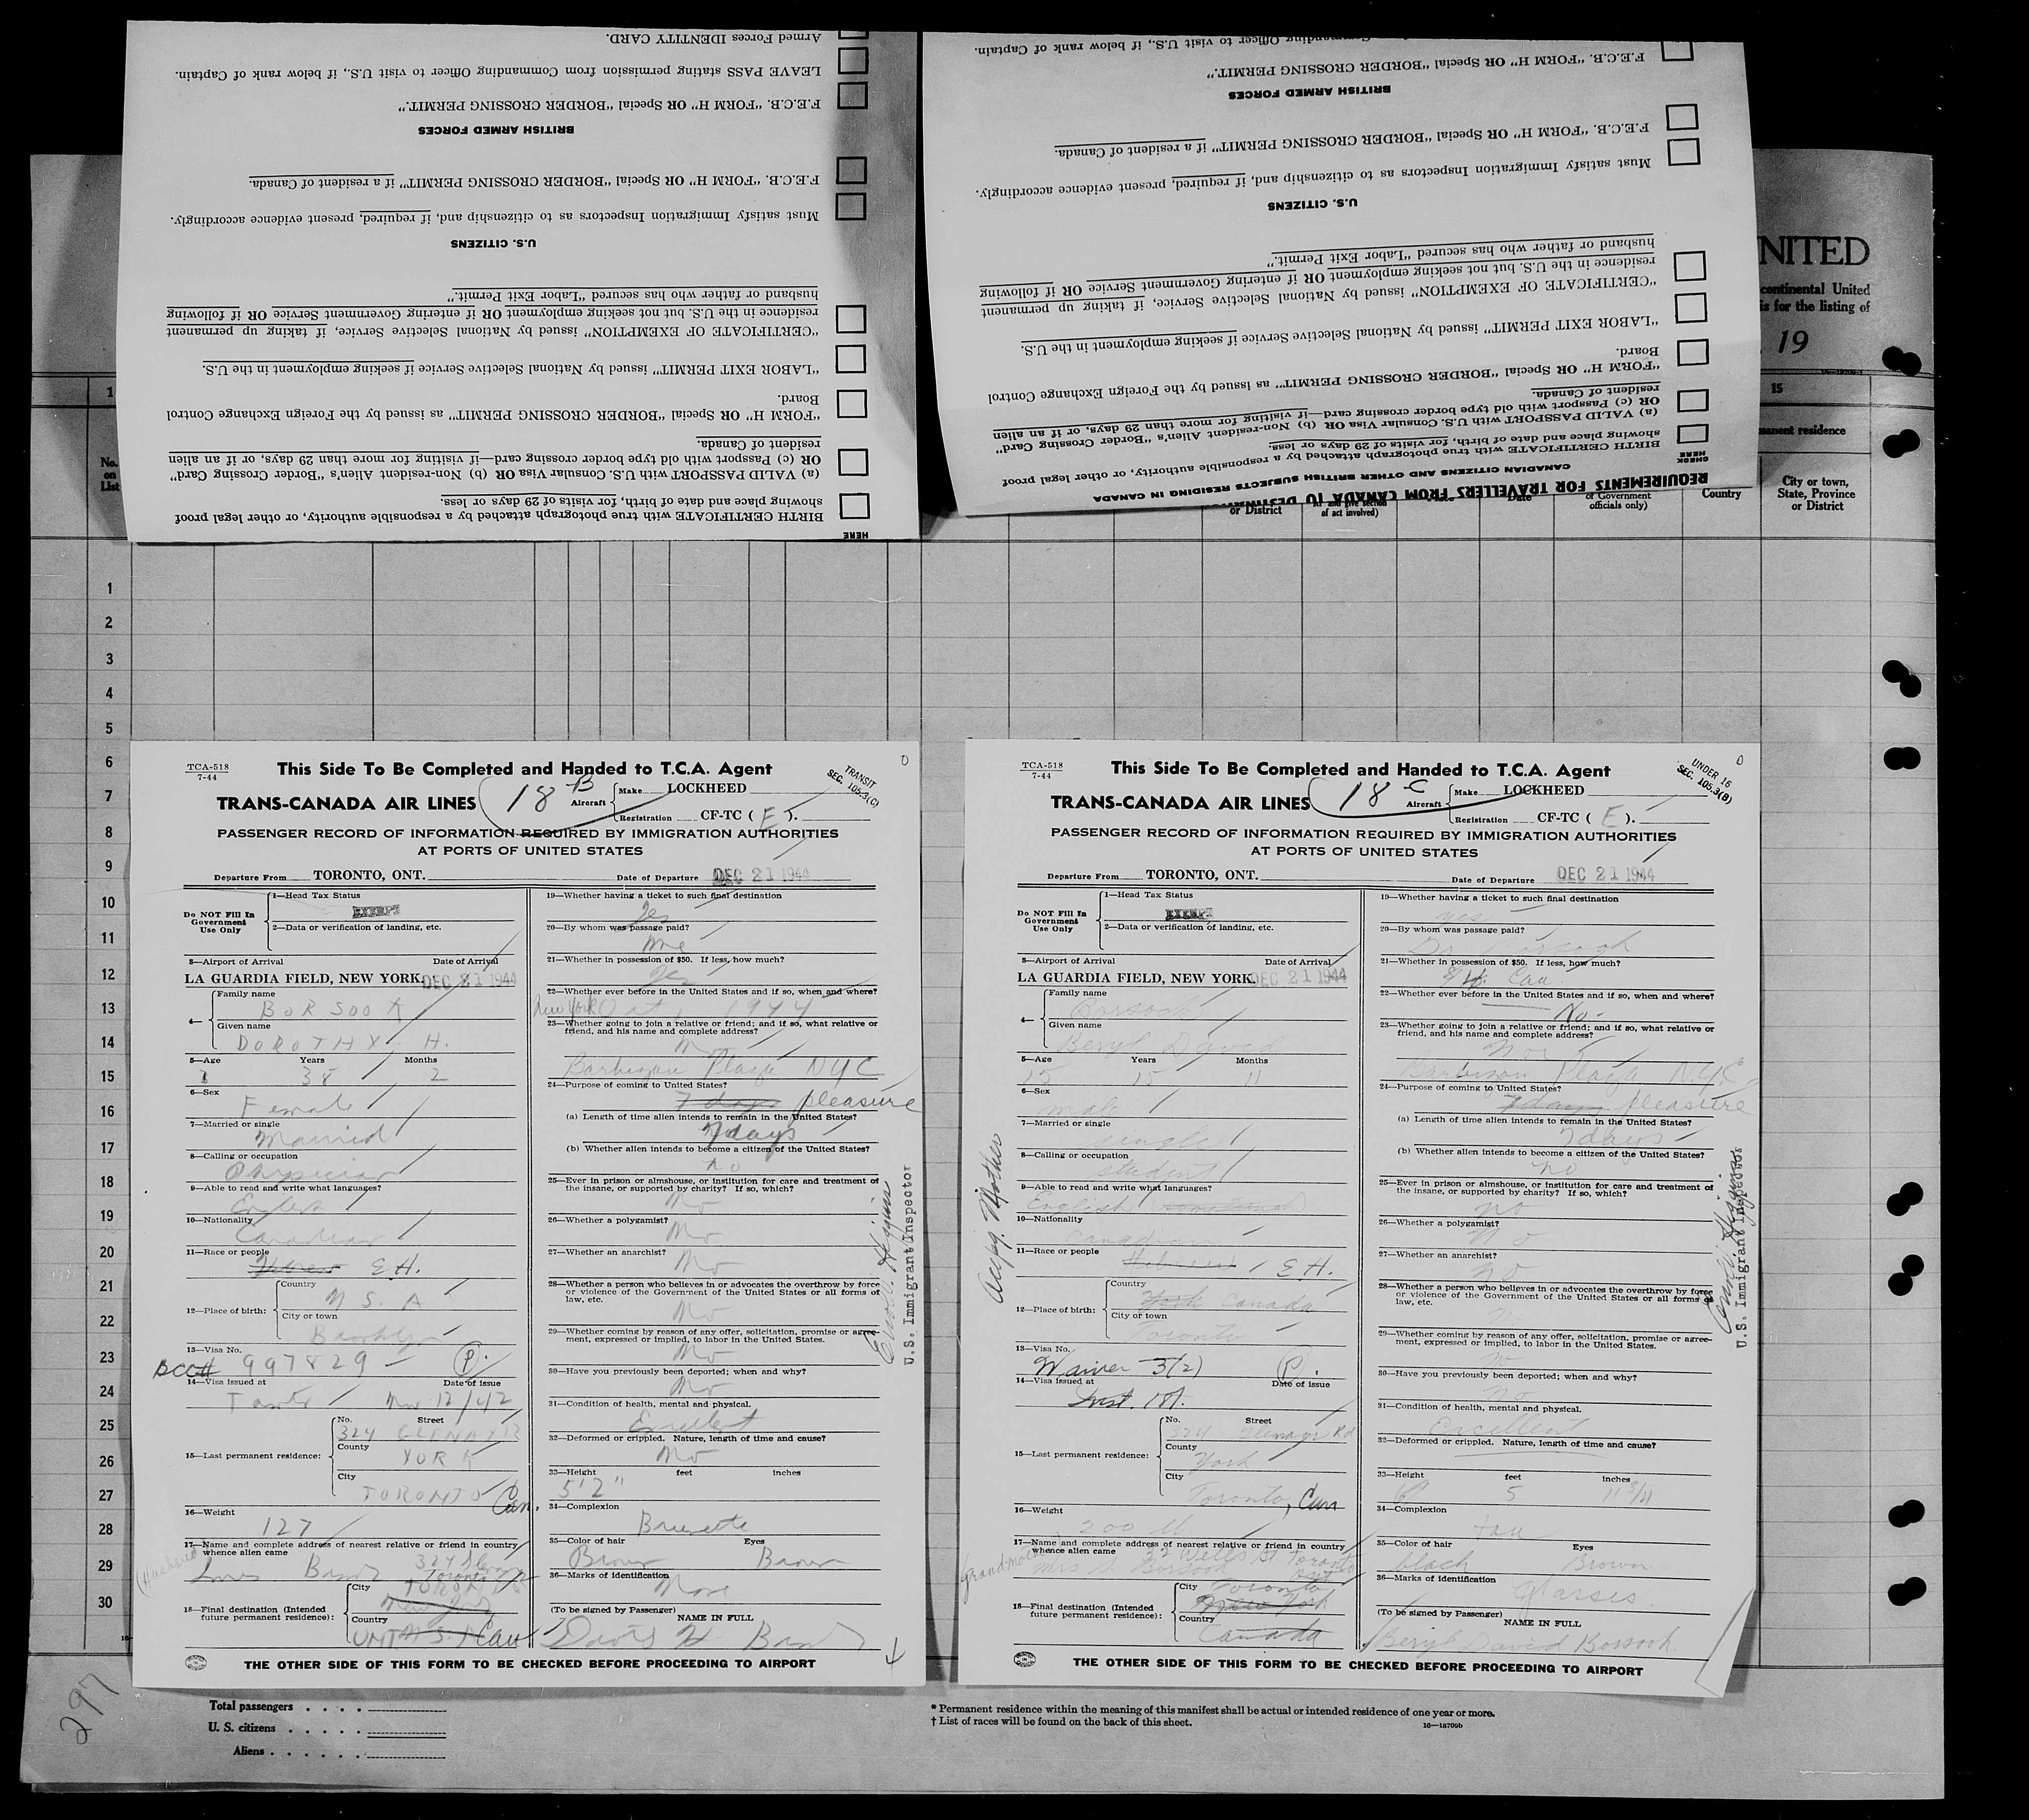 Armed Forces IDENTITY CARD.
LEAVE PASS stating permission from Commanding Officer to visit U.S., if below rank of Captain.
F.E.C.B. "FORM H" OR Special "BORDER CROSSING PERMIT".
BRITISH ARMED FORCES
F.E.C.B. "FORM H" OR Special "BORDER CROSSING PERMIT" if a resident of Canada.
Must satisfy Immigration Inspectors as to citizenship and, if required, present evidence accordingly.
U.S. CITIZENS
husband or father who has secured "Labor Exit Permit."
residence in the U.S. but not seeking employment OR if entering Government Service OR if following
"CERTIFICATE OF EXEMPTION" issued by National Selective Service, if taking up permanent
"LABOR EXIT PERMIT" issued by National Selective Service if seeking employment in the U.S.
Board.
"FORM H" OR Special "BORDER CROSSING PERMIT" as issued by the Foreign Exchange Control
resident of Canada.
OR (c) Passport with old type border crossing card—if visiting for more than 29 days, or if an alien
(a) VALID PASSPORT with U.S. Consular Visa OR (b) Non-resident Alien's "Border Crossing Card"
showing place and date of birth, for visits of 29 days or less.
BIRTH CERTIFICATE with true photograph attached by a responsible authority, or other legal proof
HERE
Commanding Officer to visit U.S., if below rank of Captain.
F.E.C.B. "FORM H" OR Special "BORDER CROSSING PERMIT".
BRITISH ARMED FORCES
F.E.C.B. "FORM H" OR Special "BORDER CROSSING PERMIT" if a resident of Canada.
Must satisfy Immigration Inspectors as to citizenship and, if required, present evidence accordingly.
U.S. CITIZENS
husband or father who has secured "Labor Exit Permit."
residence in the U.S. but not seeking employment OR if entering Government Service OR if following
"CERTIFICATE OF EXEMPTION" issued by National Selective Service, if taking up permanent
"LABOR EXIT PERMIT" issued by National Selective Service if seeking employment in the U.S.
Board.
"FORM H" OR Special "BORDER CROSSING PERMIT" as issued by the Foreign Exchange Control
resident of Canada.
OR (c) Passport with old type border crossing card—if visiting for more than 29 days, or if an alien
(a) VALID PASSPORT with U.S. Consular Visa OR (b) Non-resident Alien's "Border Crossing Card"
showing place and date of birth, for visits of 29 days or less.
BIRTH CERTIFICATE with true photograph attached by a responsible authority, or other legal proof
CHECK HERE
CANADIAN CITIZENS AND OTHER BRITISH SUBJECTS RESIDING IN CANADA
REQUIREMENTS FOR TRAVELLERS FROM CANADA TO
NITED
continental United
is for the listing of
19
1
15
No. on List
manent residence
or District
of act involved)
Date
of Government officials only)
Country
City or town, State, Province or District
1
2
3
4
5
6
7
8
9
10
11
12
13
14
15
16
17
18
19
20
21
22
23
24
25
26
27
28
29
30
TCA-518
7-44
This Side To Be Completed and Handed to T.C.A. Agent
TRANSIT
SEC. 105.3(C)
TRANS-CANADA AIR LINES
18 B
Aircraft
Make LOCKHEED
Registration CF-TC ( E ).
PASSENGER RECORD OF INFORMATION REQUIRED BY IMMIGRATION AUTHORITIES
AT PORTS OF UNITED STATES
Departure From TORONTO, ONT. Date of Departure DEC 21 1944
Do NOT Fill In Government Use Only
1—Head Tax Status
EXEMPT
2—Data or verification of landing, etc.
3—Airport of Arrival Date of Arrival
LA GUARDIA FIELD, NEW YORK. DEC 21 1944
4— Family name
BORSOOK
Given name
DOROTHY H.
5—Age Years Months
38 2
6—Sex
Female
7—Married or single
Married
8—Calling or occupation
Physician
9—Able to read and write what languages?
English
10—Nationality
Canadian
11—Race or people
Hebrew E.H.
12—Place of birth: Country
U.S.A
City or town
Brooklyn
13—Visa No.
BCC# 997829 (P).
14—Visa issued at Date of issue
Nov 12/42
15—Last permanent residence: No. Street
324 GLENAYR
County
YORK
City
TORONTO Can.
16—Weight
127
17—Name and complete address of nearest relative or friend in country whence alien came
(Husband)
Toronto
18—Final destination (Intended future permanent residence): City
TORONTO
New York
Country
ONT U.S.A Can
19—Whether having a ticket to such final destination
Yes
20—By whom was passage paid?
me
21—Whether in possession of $50. If less, how much?
Yes
22—Whether ever before in the United States and if so, when and where?
New York Oct, 1944
23—Whether going to join a relative or friend; and if so, what relative or friend, and his name and complete address?
Barbizon Plaza NYC
24—Purpose of coming to United States?
7 days pleasure
(a) Length of time alien intends to remain in the United States?
7 days
(b) Whether alien intends to become a citizen of the United States?
no
25—Ever in prison or almshouse, or institution for care and treatment of the insane, or supported by charity? If so, which?
No
26—Whether a polygamist?
No
27—Whether an anarchist?
No
28—Whether a person who believes in or advocates the overthrow by force or violence of the Government of the United States or all forms of law, etc.
No
29—Whether coming by reason of any offer, solicitation, promise or agreement, expressed or implied, to labor in the United States.
No
30—Have you previously been deported; when and why?
No
31—Condition of health, mental and physical.
Excellent
32—Deformed or crippled. Nature, length of time and cause?
No
33—Height feet inches
5'2"
34—Complexion
Brunette
35—Color of hair Eyes
Brown Brown
36—Marks of identification
None
(To be signed by Passenger) NAME IN FULL
THE OTHER SIDE OF THIS FORM TO BE CHECKED BEFORE PROCEEDING TO AIRPORT
U.S. Immigrant Inspector
TCA-518
7-44
This Side To Be Completed and Handed to T.C.A. Agent
UNDER 16
SEC. 105.3(B)
TRANS-CANADA AIR LINES
18 C
Aircraft
Make LOCKHEED
Registration CF-TC ( E ).
PASSENGER RECORD OF INFORMATION REQUIRED BY IMMIGRATION AUTHORITIES
AT PORTS OF UNITED STATES
Departure From TORONTO, ONT. Date of Departure DEC 21 1944
Do NOT Fill In Government Use Only
1—Head Tax Status
EXEMPT
2—Data or verification of landing, etc.
3—Airport of Arrival Date of Arrival
LA GUARDIA FIELD, NEW YORK. DEC 21 1944
4— Family name
Borsook
Given name
Beryl David
5—Age Years Months
15 15 11
6—Sex
male
7—Married or single
single
8—Calling or occupation
student
9—Able to read and write what languages?
English
10—Nationality
Canadian
11—Race or people
Hebrew E.H.
12—Place of birth: Country
York Canada
City or town
Toronto
13—Visa No.
Waiver 3(2) (P).
14—Visa issued at Date of issue
Inst. 181.
15—Last permanent residence: No. Street
324 Glenayr Rd
County
York
City
Toronto, Can
16—Weight
200
17—Name and complete address of nearest relative or friend in country whence alien came
Grandmother
32 Wells St Toronto
Mrs Borsook Ont
18—Final destination (Intended future permanent residence): City
Toronto
New York
Country
Canada
19—Whether having a ticket to such final destination
yes
20—By whom was passage paid?
Dr. Borsook
21—Whether in possession of $50. If less, how much?
Can.
22—Whether ever before in the United States and if so, when and where?
No.
23—Whether going to join a relative or friend; and if so, what relative or friend, and his name and complete address?
Barbizon Plaza NYC
24—Purpose of coming to United States?
7 days pleasure
(a) Length of time alien intends to remain in the United States?
7 days
(b) Whether alien intends to become a citizen of the United States?
no
25—Ever in prison or almshouse, or institution for care and treatment of the insane, or supported by charity? If so, which?
no
26—Whether a polygamist?
No
27—Whether an anarchist?
No
28—Whether a person who believes in or advocates the overthrow by force or violence of the Government of the United States or all forms of law, etc.
29—Whether coming by reason of any offer, solicitation, promise or agreement, expressed or implied, to labor in the United States.
30—Have you previously been deported; when and why?
No
31—Condition of health, mental and physical.
Excellent
32—Deformed or crippled. Nature, length of time and cause?
33—Height feet inches
5 11 3/4
34—Complexion
tan
35—Color of hair Eyes
black Brown
36—Marks of identification
Glasses
(To be signed by Passenger) NAME IN FULL
Beryl David Borsook.
THE OTHER SIDE OF THIS FORM TO BE CHECKED BEFORE PROCEEDING TO AIRPORT
Accpg. Mother
U.S. Immigrant Inspector
297
Total passengers
U. S. citizens
Aliens
* Permanent residence within the meaning of this manifest shall be actual or intended residence of one year or more.
† List of races will be found on the back of this sheet.
16—18709b